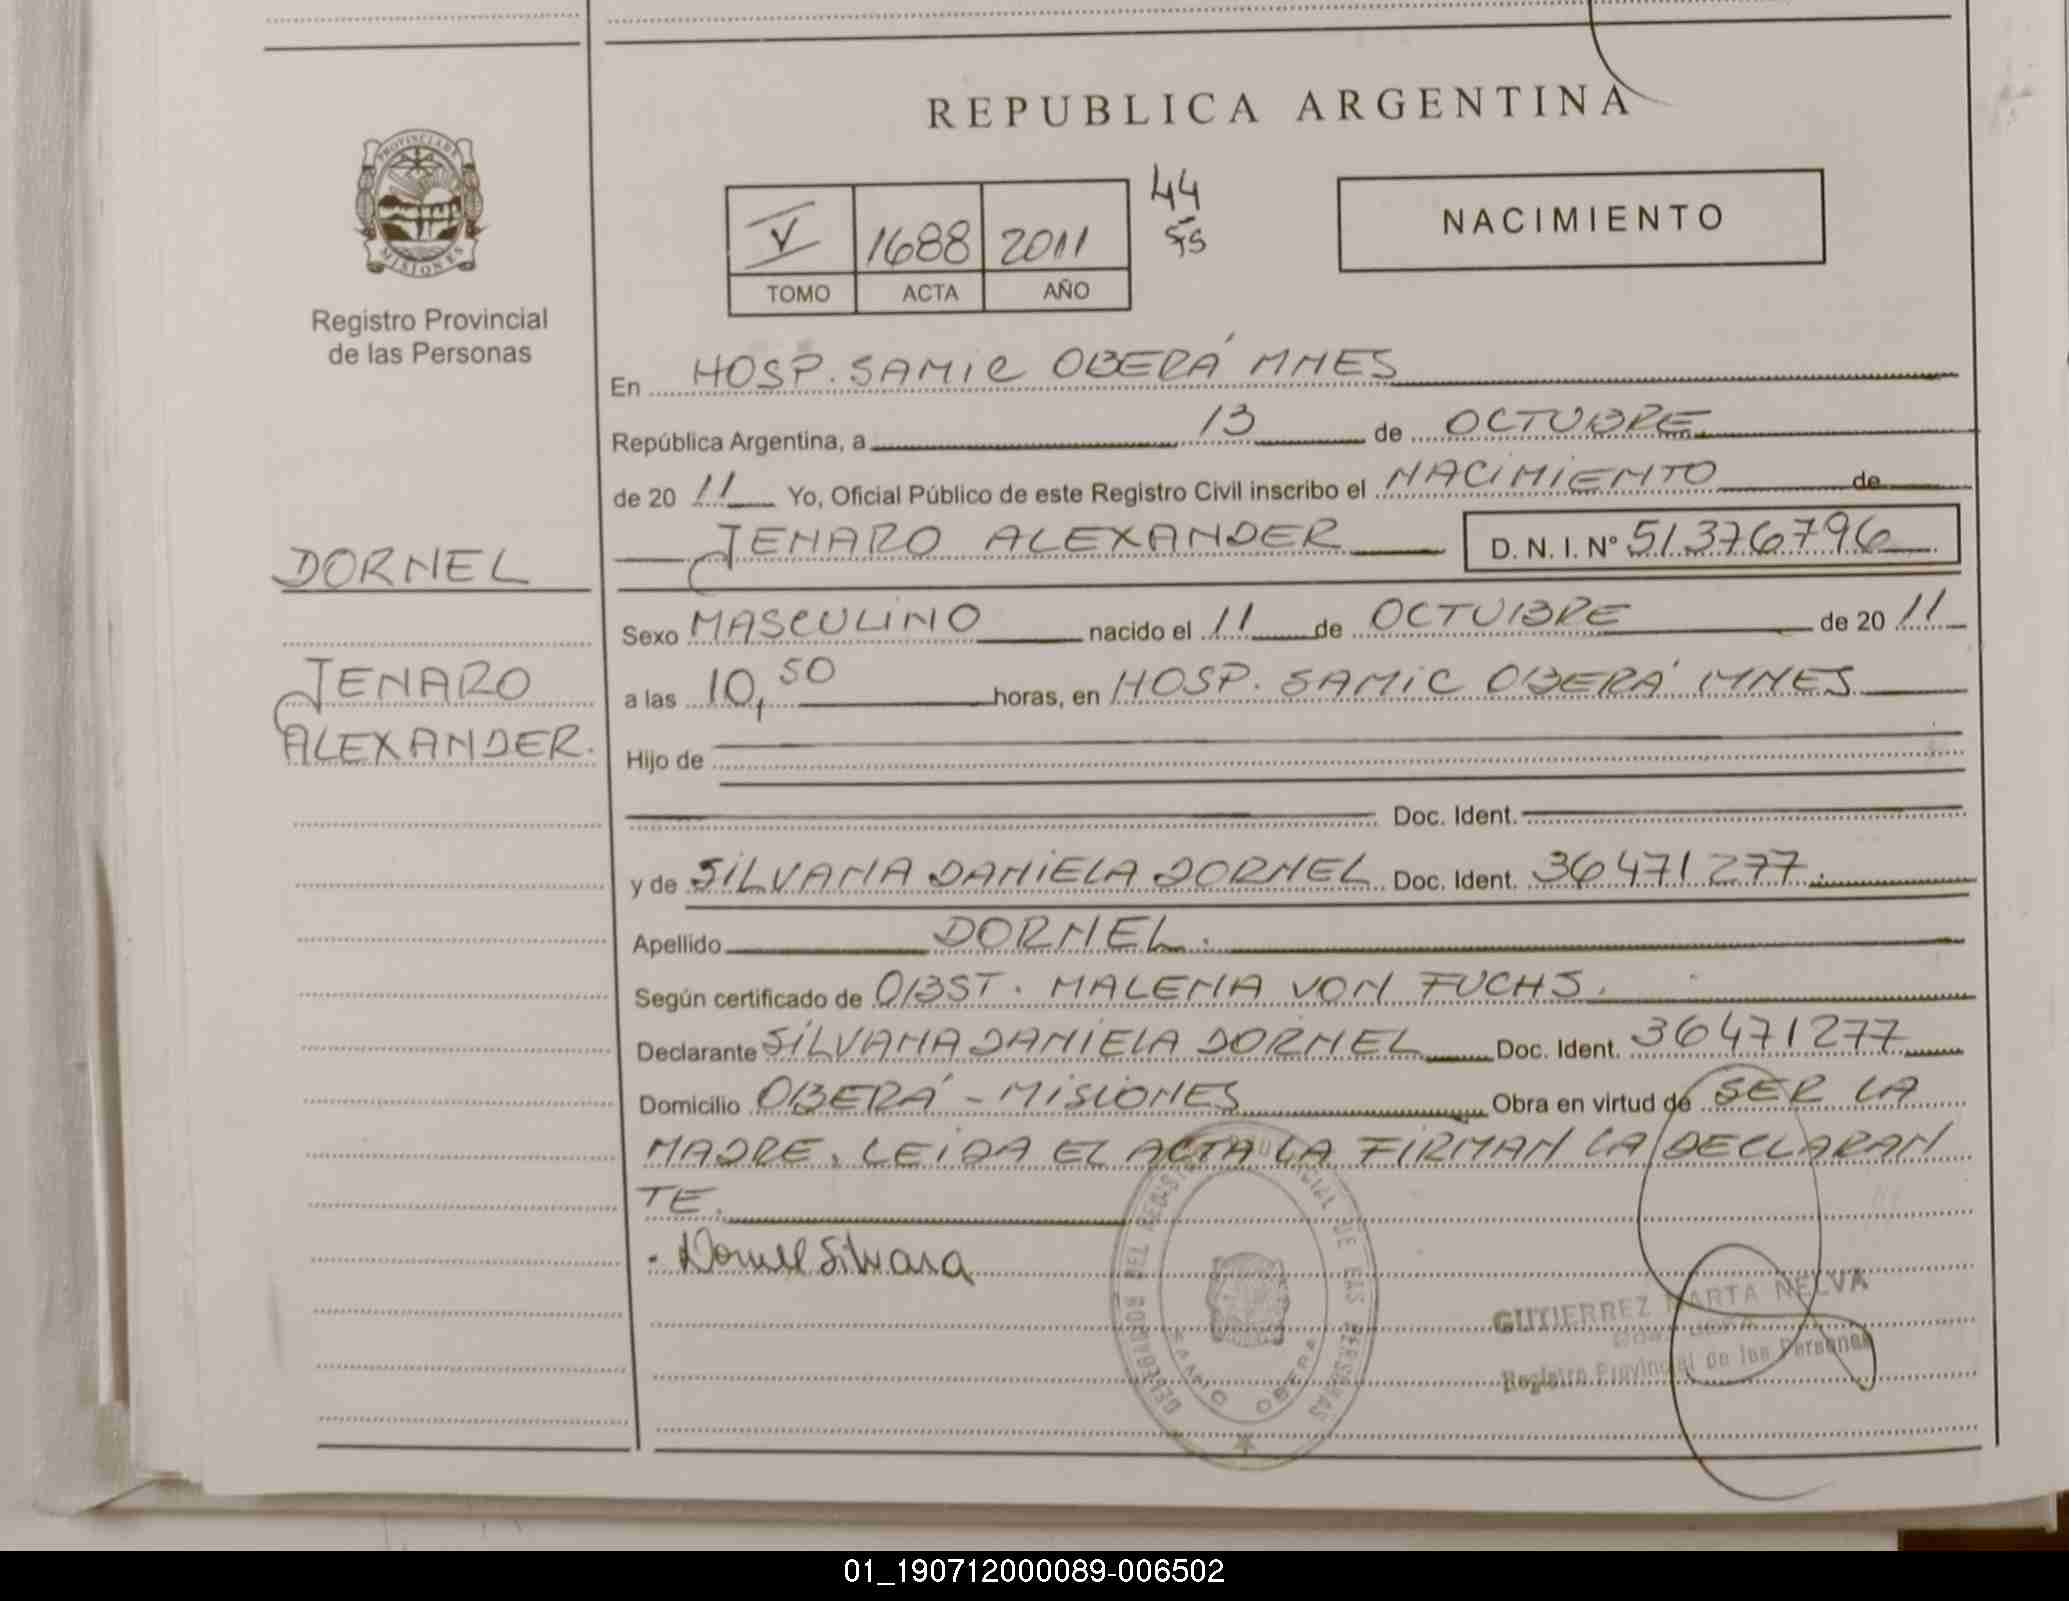 REPUBLICA ARGENTINA
PROVINCIA DE
MISIONES
Registro Provincial
de las Personas
V 1688 2011
TOMO ACTA AÑO
44
NACIMIENTO
En HOSP. SAMIC OBERÁ MNES
República Argentina, a 13 de OCTUBRE
de 20 11 Yo, Oficial Público de este Registro Civil inscribo el NACIMIENTO de
JENARO ALEXANDER D. N. I. N° 51376796
DORNEL
JENARO
ALEXANDER.
Sexo MASCULINO nacido el 11 de OCTUBRE de 20 11
a las 10,50 horas, en HOSP. SAMIC OBERÁ MNES
Hijo de
Doc. Ident.
y de SILVANA DANIELA DORNEL Doc. Ident. 36471277.
Apellido DORNEL.
Según certificado de OBST. MALENA VON FUCHS.
Declarante SILVANA DANIELA DORNEL Doc. Ident. 36471277
Domicilio OBERÁ - MISIONES Obra en virtud de SER LA
MADRE. LEIDA EL ACTA LA FIRMAN LA DECLARAN
TE.
Dornel Silvana
DEL REGISTRO PROVINCIAL DE LAS PERSONAS
OBERA
GUTIERREZ MARTA NELVA
Registro Provincial de las Personas
01_190712000089-006502